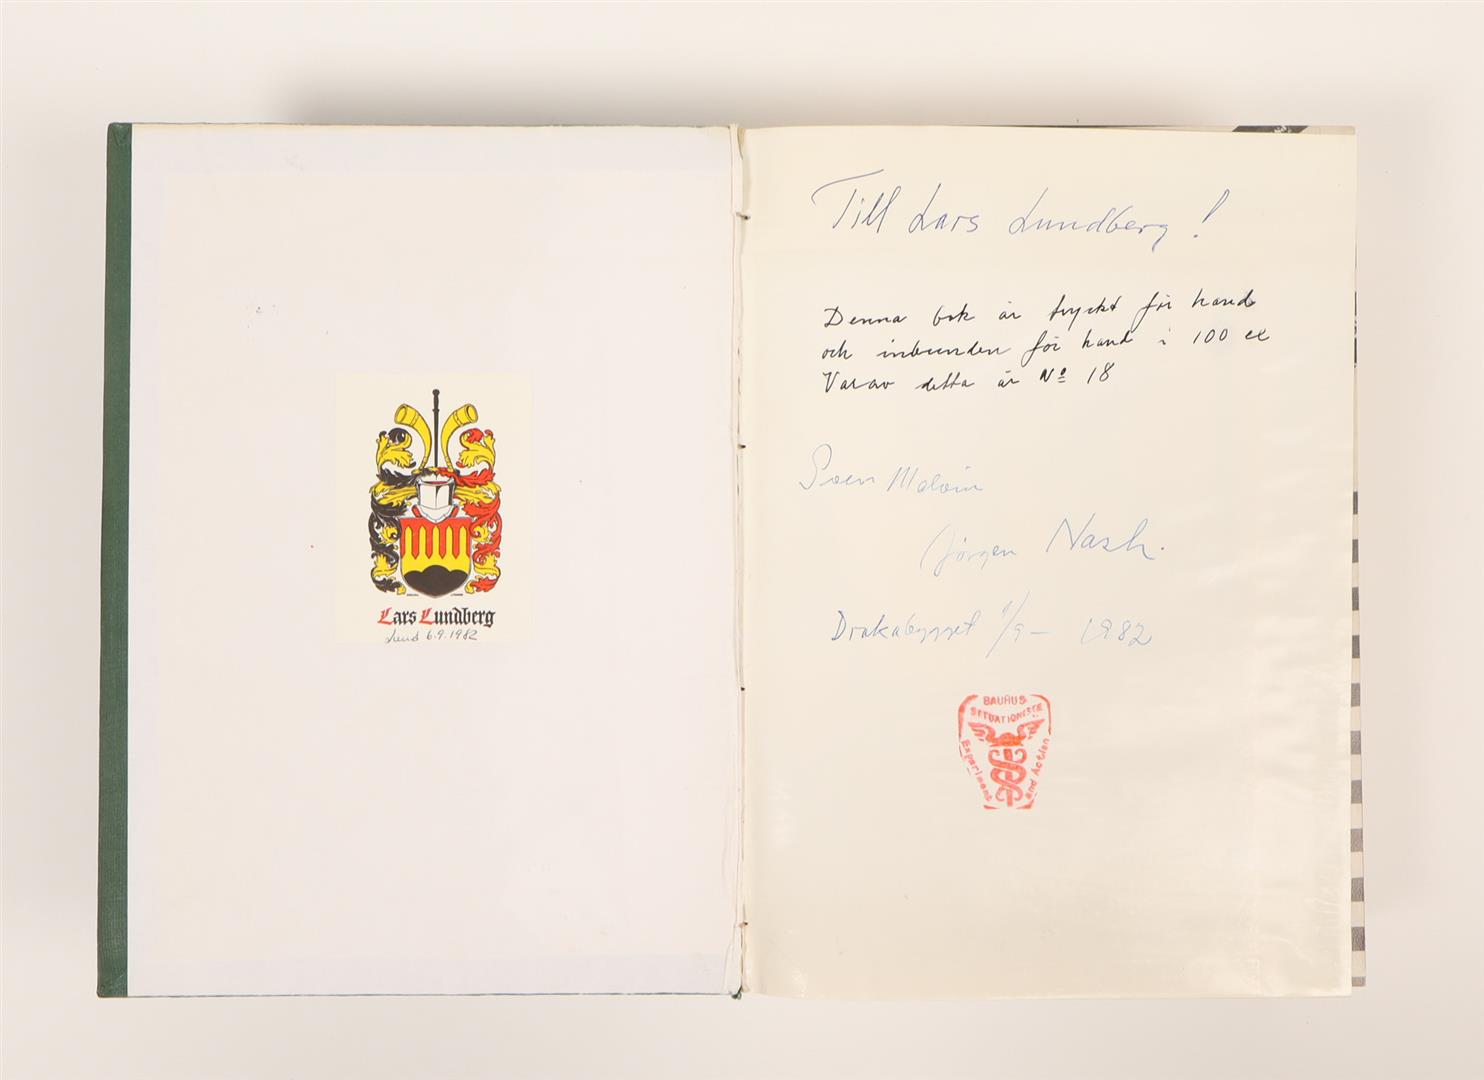 Lars Lundberg
Lund 6.9.1982
Till Lars Lundberg!
Denna bok är tryckt för hand
och inbunden för hand i 100 ex
Varav detta är No 18
Sven Malvin
Jörgen Nash.
Drakabygget 1/9 - 1982
BAUHUS
SITUATIONISTE
Experiment
and Action